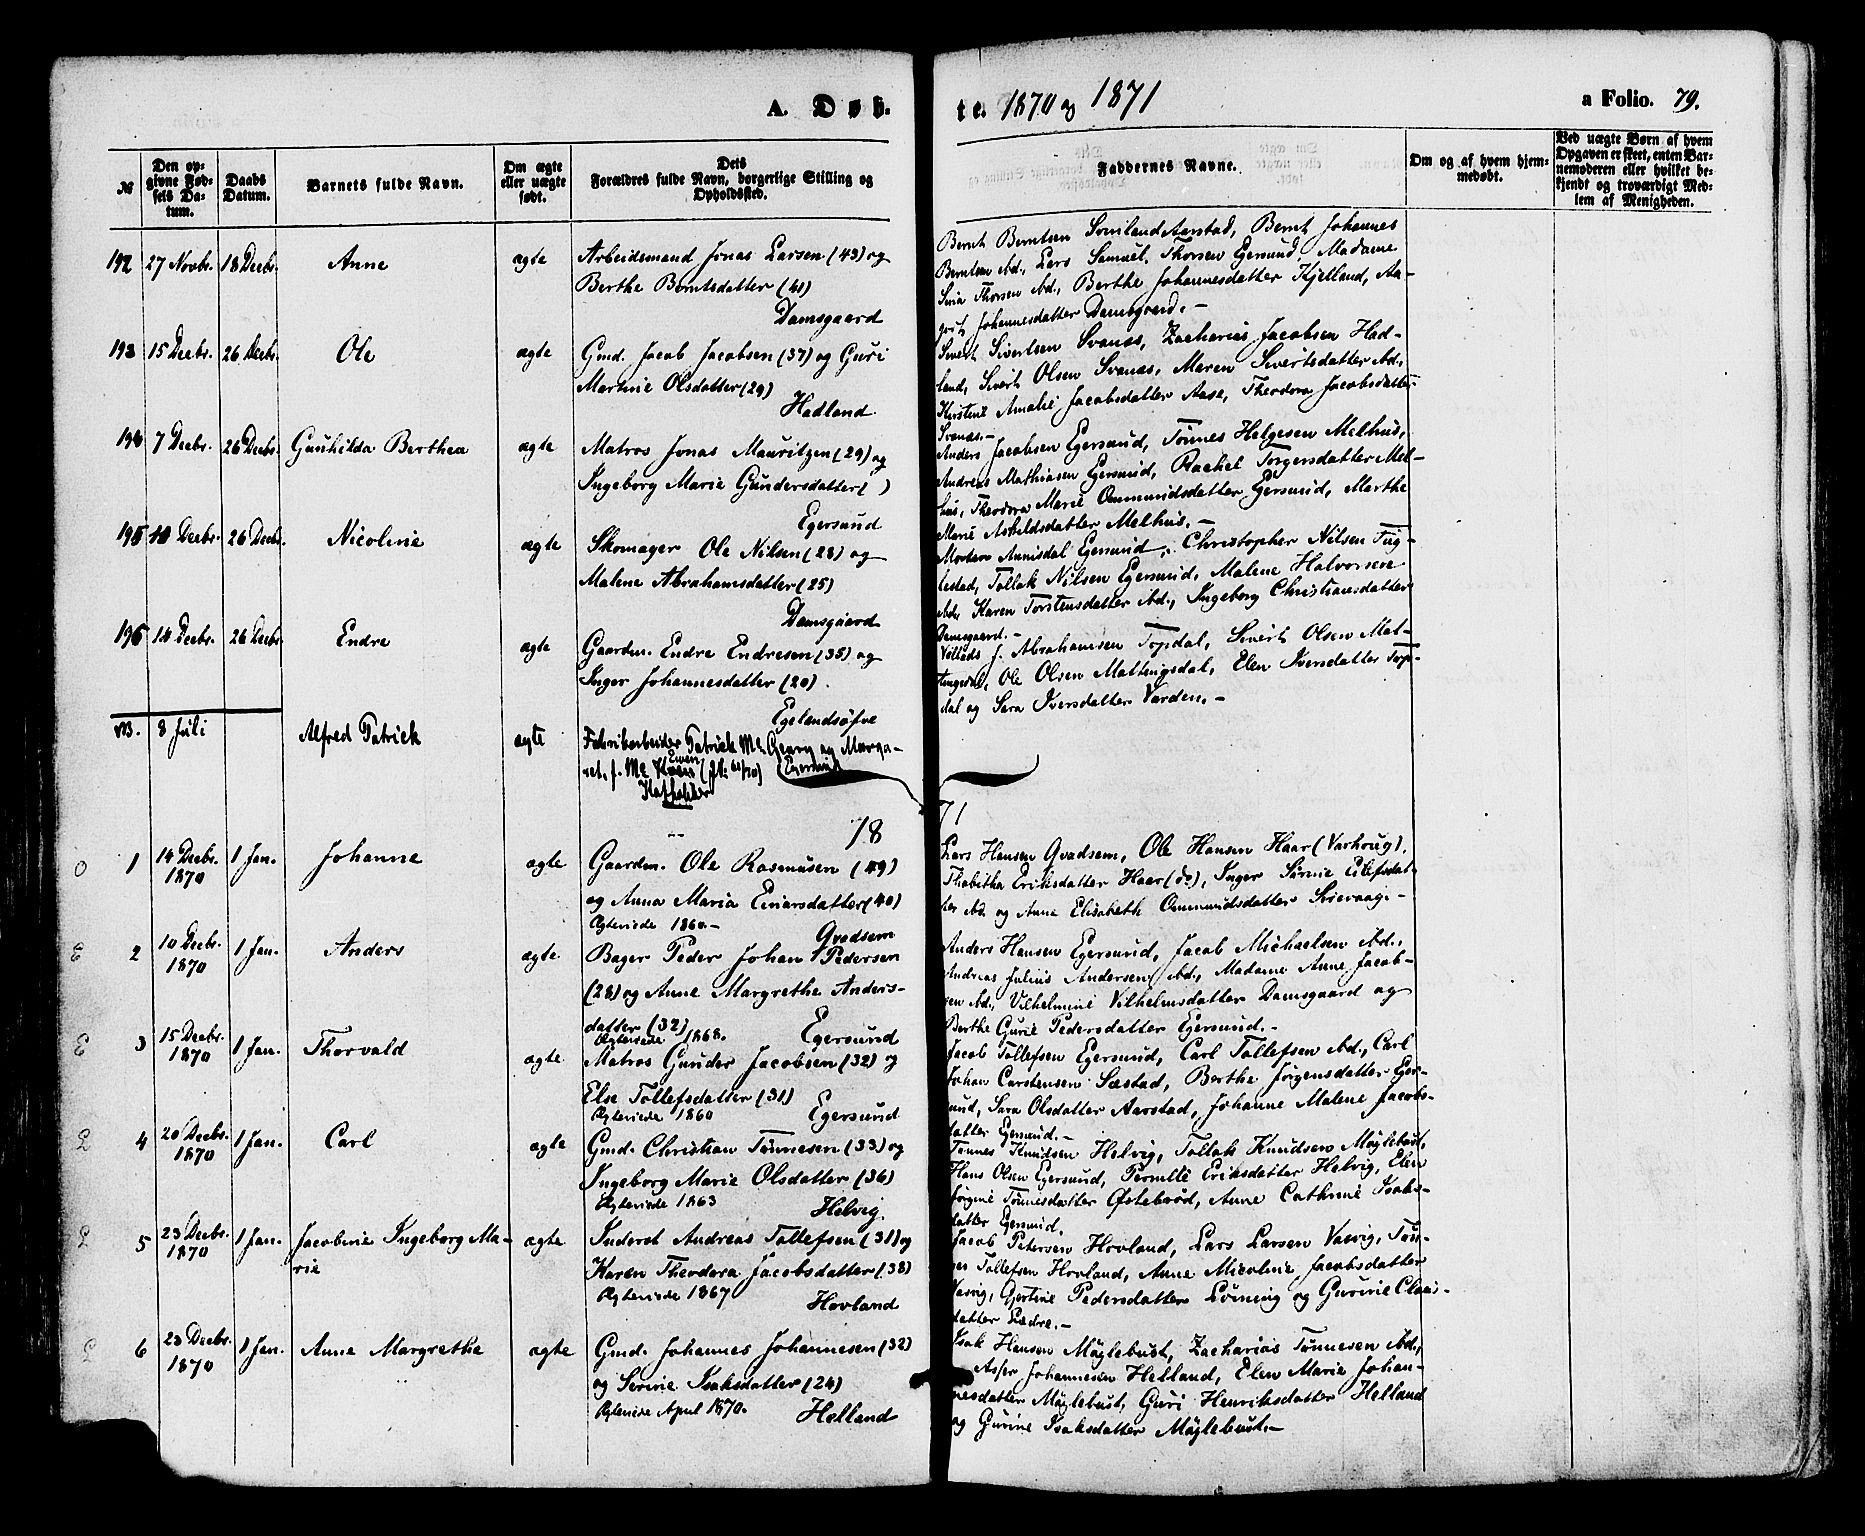 A. Døb- te. 1870 og 1871
a Folio. 79.
№
Den op-
givne Fød-
sels Da-
tum.
Daabs
Datum.
Barnets fulde Navn.
Om ægte
eller uægte
født.
Dets
Forældres fulde Navn, borgerlige Stilling og
Opholdssted.
Faddernes Navne.
Om og af hvem hjem-
medøbt.
Ved uægte Børn af hvem
Opgaven er skeet, enten Bar-
nemoderen eller hvilket be-
kjendt og troværdigt Med-
lem af Menigheden.
192 27 Novbr. 18 Decbr. Anne ægte
Arbeidsmand Jonas Larsen (43) og
Berthe Berntsdatter (41)
Damsgaard
Bernt Berntsen Aarstad, Bernt Johannes
Berntsen ibd., Lars Samuel Thorsen Egersund, Madame
Thorsen ibd., Berthe Johannesdatter Kjelland, Aa-
Johannesdatter Damsgaard.-
193 15 Decbr. 26 Decbr. Ole ægte
Gmd. Jacob Jacobsen (37) og Guri
Martine Olsdatter (29)
Hadland.
Sivert Sivertsen Svanæs, Zacharias Jacobsen Had-
land, Sivert Olsen Svanæs, Maren Sivertsdatter ibd.,
Kirstine Amalie Jacobsdatter Aase, Theodora Jacobsdatter
Svanæs.-
194 7 Decbr. 26 Decbr. Gunhilda Berthea ægte
Matros Jonas Mauritzen (29) og
Ingeborg Marie Gundersdatter ( )
Egersund
Anders Jacobsen Egersund, Tönnes Helgesen Melhus,
Andreas Mathiasen Egersund, Rachel Torgersdatter Mel-
hus, Theodora Marie Ommundsdatter Egersund, Marthe
Marie Askildsdatter Melhus.-
195 10 Decbr. 26 Decbr. Nicoline ægte
Skomager Ole Nilsen (28) og
Malene Abrahamsdatter (25)
Damsgaard
Annisdal Egersund, Christopher Nilsen Fug-
lestad, Tollak Nilsen Egersund, Malene Halvorsen
ibd., Karen Torstensdatter ibd., Ingeborg Christiansdatter
Damsgaard.-
196 14 Decbr. 26 Decbr. Endre ægte
Gaardm. Endre Endresen (35) og
Inger Johannesdatter (20).
Egelandsöfve
Villads J. Abrahamsen Topdal, Sivert Olsen Mat-
tingsdal, Ole Olsen Mattingsdal, Elen Iversdatter Top-
dal og Sara Iversdatter Varden.-
8 Juli Alfred Patrick ægte
Fabrikarbeider Patrick Mc. Geary og Marga-
ret, f. Mc Ewen (Egersund
Katholiker
18 71
1 14 Decbr. 1870 1 Jan. Johanne ægte
Gaardm. Ole Rasmusen (49)
og Anna Maria Einarsdatter (40)
Ægteviede 1860.-
Gvadsem
Lars Hansen Gvadsem, Ole Hansen Haar (Varhoug),
Thabitha Eriksdatter Haar (do), Inger Sirine Eilefsdat-
ter ibd. og Anne Elisabeth Ommundsdatter
2 10 Decbr. 1870 1 Jan. Anders ægte
Bager Peder Johan Pedersen
(28) og Anne Margrethe Anders-
datter (32)
Ægteviede 1868.
Egersund
Anders Hansen Egersund, Jacob Michaelsen ibd.,
Andreas Julius Andersen ibd., Madame Anne Jacob-
sen ibd., Vilhelmine Vilhelmsdatter Damsgaard og
Berthe Gurie Pedersdatter Egersund.-
3 15 Decbr. 1870 1 Jan. Thorvald ægte
Matros Gunder Jacobsen (32) og
Else Tollefsdatter (31)
Ægteviede 1860
Egersund
Jacob Tollefsen Egersund, Carl Tollefsen ibd., Carl
Johan Carstensen Sæstad, Berthe Jörgensdatter Eger-
sund, Sara Olsdatter Aarstad, Johanne Malene Jacobs-
datter Egersund.-
4 20 Decbr. 1870 1 Jan. Carl ægte
Gmd. Christian Tönnesen (33) og
Ingeborg Marie Olsdatter (36)
Ægteviede 1863
Helvig
Tönnes Knudsen Helvig, Tollak Knudsen Möglebust,
Hans Olsen Egersund, Pernille Eriksdatter Helvig, Elen
Jörgine Tönnesdatter Østebröd, Anne Cathrine Isaks-
datter Egersund.
5 23 Decbr. 1870 1 Jan. Jacobine Ingeborg Ma-
rie ægte
Inderst Andreas Tollefsen (31) og
Karen Theodora Jacobsdatter (38)
Ægteviede 1867
Hovland
Jacob Petersen Hovland, Lars Larsen Vasvig, Tön-
nes Tollefsen Hovland, Anne Nicoline Jacobsdatter
Vasvig, Gjertine Pedersdatter Löining og Gurine Claus-
datter Lædre.-
6 23 Decbr. 1870 1 Jan. Anne Margrethe ægte
Gmd. Johannes Johannesen (32)
og Serine Isaksdatter (24)
Ægteviede April 1870.
Helland
Isak Hansen Möglebust, Zacharias Tönnesen ibd.,
Asser Johannesen Helland, Elen Marie Johan-
nesdatter Möglebust, Guri Henriksdatter Helland
og Gurine Isaksdatter Möglebust.-